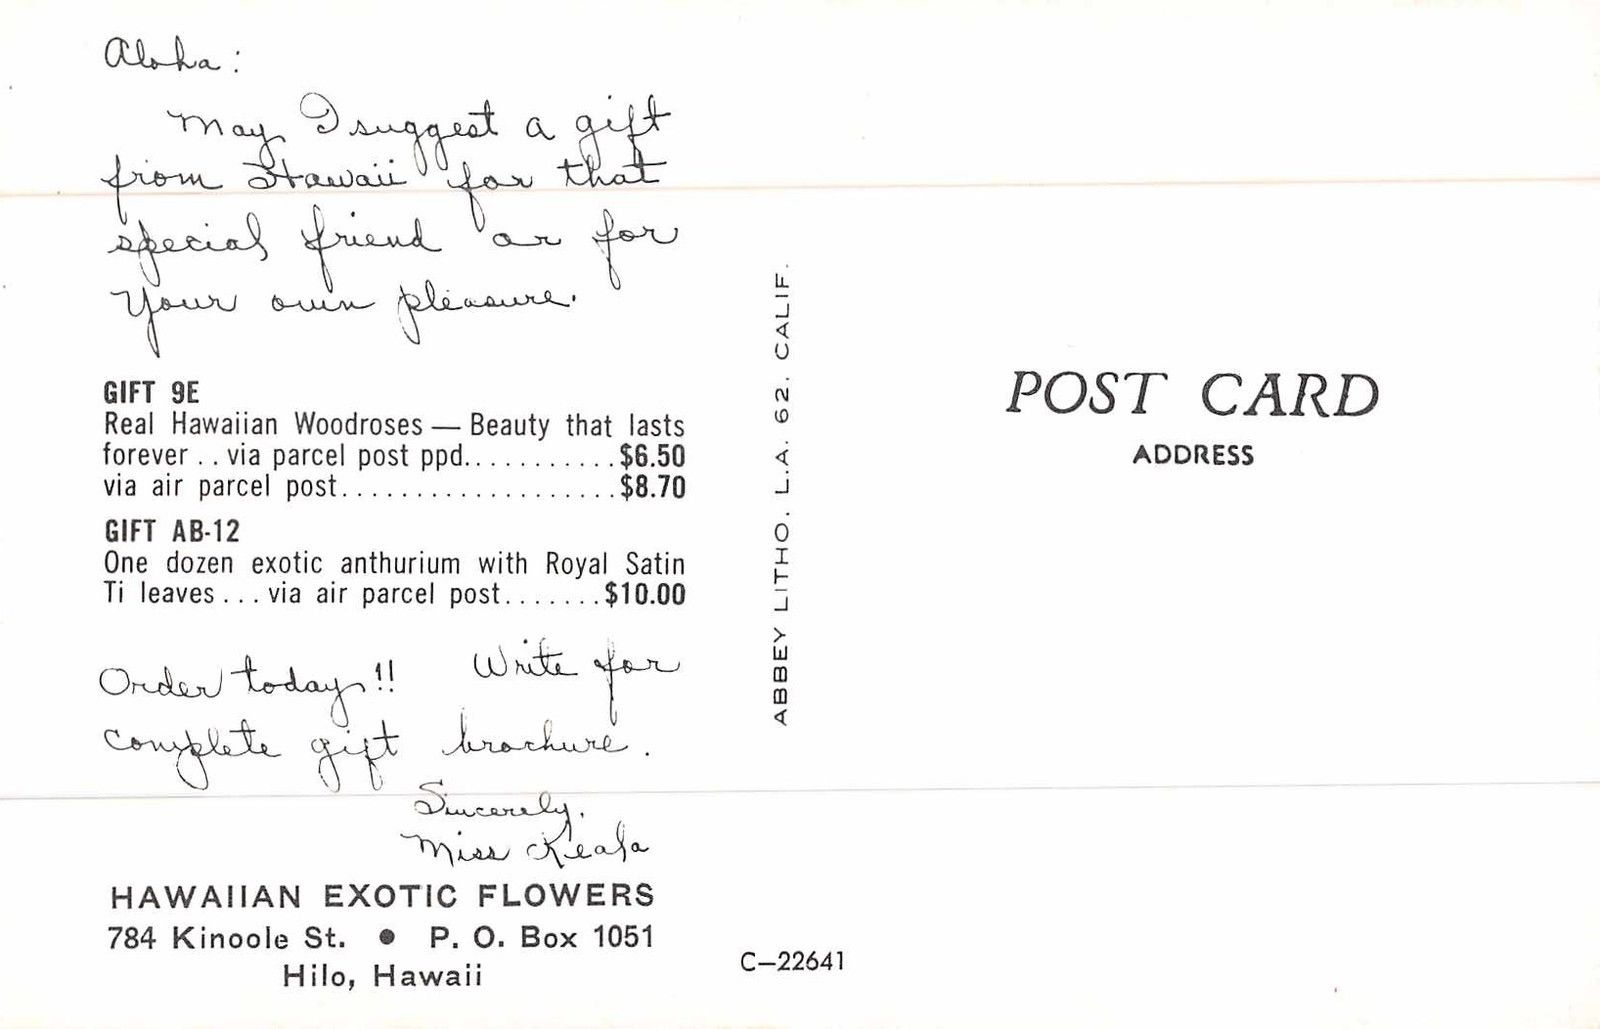 Aloha:
May I suggest a gift
from Hawaii for that
special friend or for
your own pleasure.
GIFT 9E
Real Hawaiian Woodroses — Beauty that lasts
forever . . via parcel post ppd. . . . . . . . . . . $6.50
via air parcel post. . . . . . . . . . . . . . . . . . . $8.70
GIFT AB-12
One dozen exotic anthurium with Royal Satin
Ti leaves . . . via air parcel post. . . . . . . $10.00
Order today!! Write for
complete gift brochure.
Sincerely,
Miss Keala
HAWAIIAN EXOTIC FLOWERS
784 Kinoole St. ● P. O. Box 1051
Hilo, Hawaii
C—22641
ABBEY LITHO. L.A. 62. CALIF.
POST CARD
ADDRESS